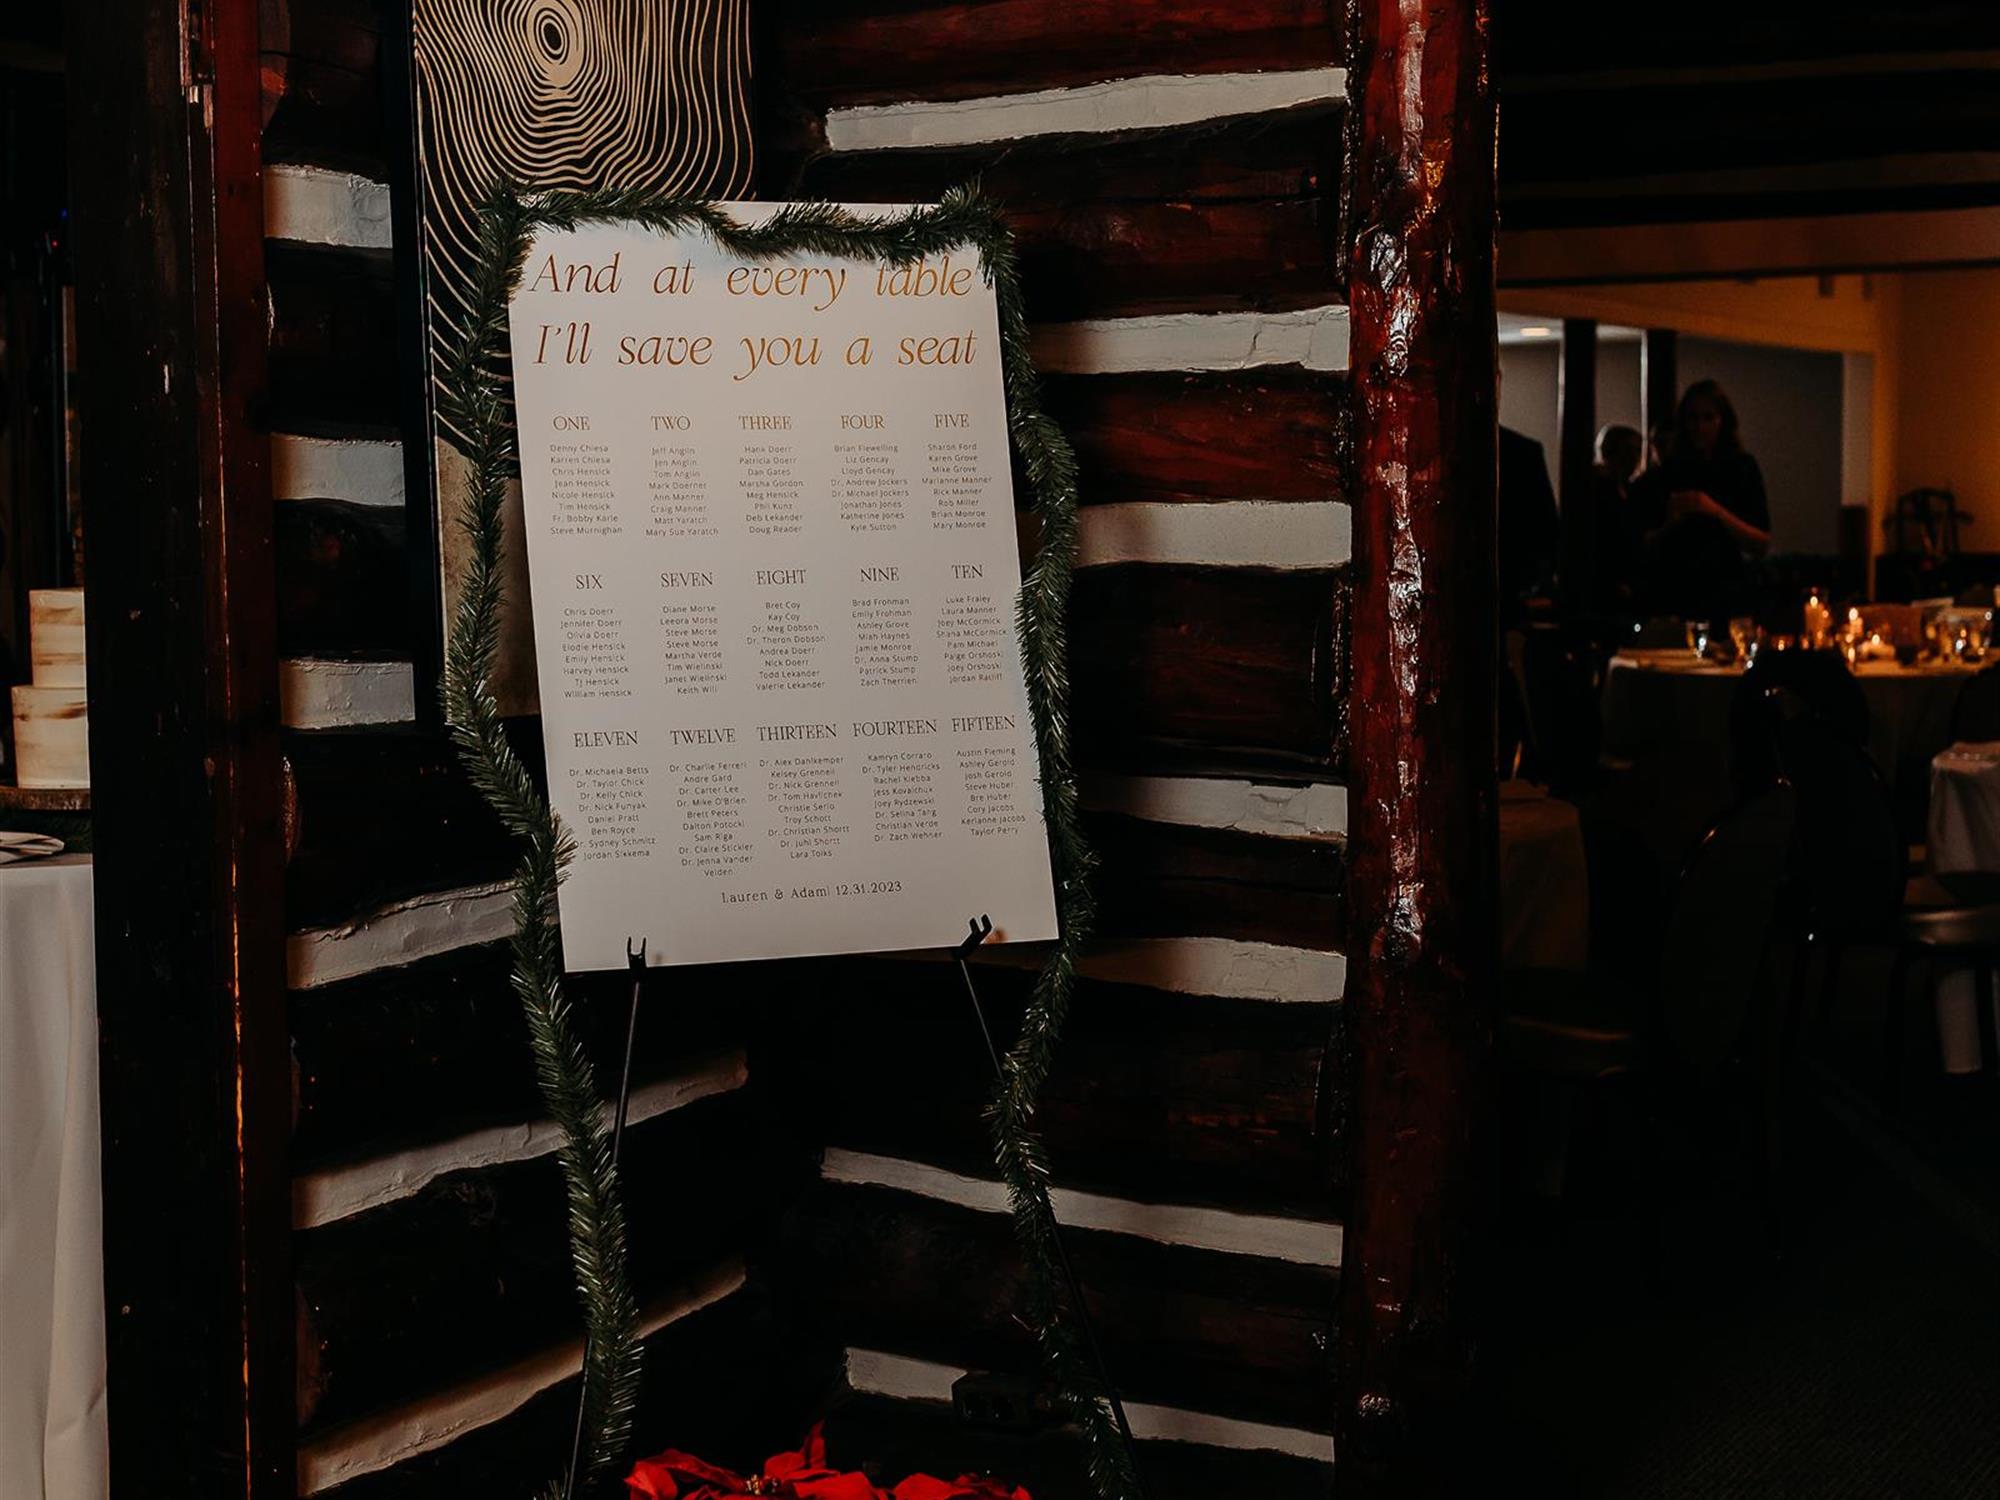 And at every table
I'll save you a seat
ONE
Denny Chiesa
Karren Chiesa
Chris Hensick
Jean Hensick
Nicole Hensick
Tim Hensick
Fr. Bobby Karle
Steve Murnighan
TWO
Jeff Anglin
Jen Anglin
Tom Anglin
Mark Doerner
Ann Manner
Craig Manner
Matt Yaratch
Mary Sue Yaratch
THREE
Hank Doerr
Patricia Doerr
Dan Gates
Marsha Gordon
Meg Hensick
Phil Kunz
Deb Lekander
Doug Reader
FOUR
Brian Flewelling
Liz Gencay
Lloyd Gencay
Dr. Andrew Jockers
Dr. Michael Jockers
Jonathan Jones
Katherine Jones
Kyle Sutton
FIVE
Sharon Ford
Karen Grove
Mike Grove
Marianne Manner
Rick Manner
Rob Miller
Brian Monroe
Mary Monroe
SIX
Chris Doerr
Jennifer Doerr
Olivia Doerr
Elodie Hensick
Emily Hensick
Harvey Hensick
TJ Hensick
William Hensick
SEVEN
Diane Morse
Leeora Morse
Steve Morse
Steve Morse
Martha Verde
Tim Wielinski
Janet Wielinski
Keith Will
EIGHT
Bret Coy
Kay Coy
Dr. Meg Dobson
Dr. Theron Dobson
Andrea Doerr
Nick Doerr
Todd Lekander
Valerie Lekander
NINE
Brad Frohman
Emily Frohman
Ashley Grove
Miah Haynes
Jamie Monroe
Dr. Anna Stump
Patrick Stump
Zach Therrien
TEN
Luke Fraley
Laura Manner
Joey McCormick
Shana McCormick
Pam Michael
Paige Orshoski
Joey Orshoski
Jordan Ratliff
ELEVEN
Dr. Michaela Betts
Dr. Taylor Chick
Dr. Kelly Chick
Dr. Nick Funyak
Daniel Pratt
Ben Royce
Dr. Sydney Schmitz
Jordan Sikkema
TWELVE
Dr. Charlie Ferreri
Andre Gard
Dr. Carter Lee
Dr. Mike O'Brien
Brett Peters
Dalton Potocki
Sam Riga
Dr. Claire Stickler
Dr. Jenna Vander
Velden
THIRTEEN
Dr. Alex Dahlkemper
Kelsey Grennell
Dr. Nick Grennell
Dr. Tom Havlichek
Christie Serio
Troy Schott
Dr. Christian Shortt
Dr. Juhi Shortt
Lara Tolks
FOURTEEN
Kamryn Corraro
Dr. Tyler Hendricks
Rachel Klebba
Jess Kovalchuk
Joey Rydzewski
Dr. Selina Tang
Christian Verde
Dr. Zach Wehner
FIFTEEN
Austin Fleming
Ashley Gerold
Josh Gerold
Steve Huber
Bre Huber
Cory Jacobs
Kerianne Jacobs
Taylor Perry
Lauren & Adam| 12.31.2023